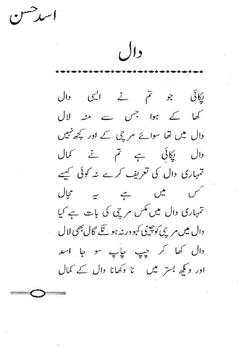 اسد حسن
دال
پکائی جو تم نے ایسی دال
کھا کے ہوا جس سے منہ لال
دال میں تھا سوائے مرچی کے اور کچھ نہیں
دال پکائی ہے تم نے کمال
تمہاری دال کی تعریف کرے نہ کوئی کیسے
کس میں ہے یہ مجال
تمہاری دال میں مکس مرچی کی بات ہے کیا
دال میں مرچی کو چینی کہو ورنہ ہونگے گال بھی لال
دال کھا کر چپ چاپ سو جا اسد
اور دیکھ بستر میں نا دکھانا دال کے کمال